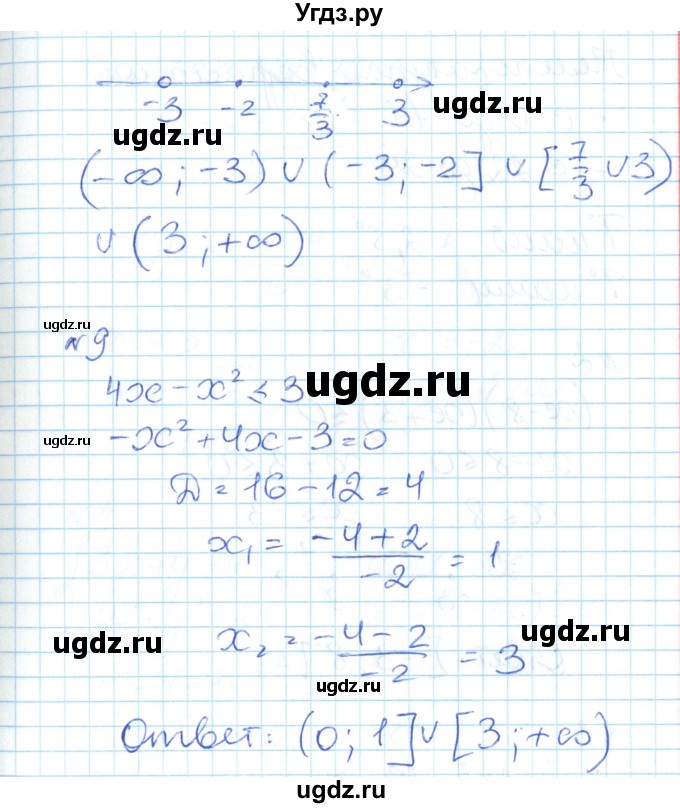 Угдз.ру
-3 -2 7/3 3
ugdz.ru
ugdz.ru
(-∞; -3) ∪ (-3; -2] ∪ [7/3 ∪ 3)
∪ (3; +∞)
ugdz.ru
ugdz.ru
№9
4x - x² ≤ 3
ugdz.ru
ugdz.ru
-x² + 4x - 3 = 0
Д = 16 - 12 = 4
x₁ = (-4+2)/(-2) = 1
ugdz.ru
ugdz.ru
x₂ = (-4-2)/(-2) = 3
ugdz.ru
Ответ: (0; 1] ∪ [3; +∞)
ugdz.ru